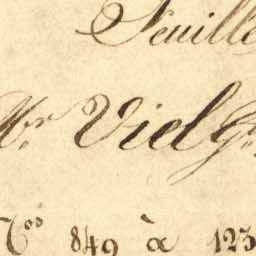 Feuille
Mr Viel G
Nos 849 à 123